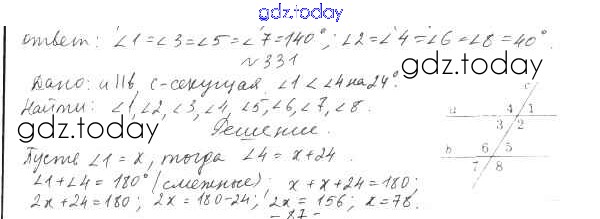 gdz.today
Ответ: ∠1=∠3=∠5=∠7=140°; ∠2=∠4=∠6=∠8=40°.
№331
gdz.today
Дано: a||b, c-секущая, ∠1<∠4 на 24°.
gdz.today
Найти: ∠1, ∠2, ∠3, ∠4, ∠5, ∠6, ∠7, ∠8.
Решение.
Пусть ∠1=x, тогда ∠4=x+24.
∠1+∠4=180° (смежные); x+x+24=180;
2x+24=180; 2x=180-24; 2x=156; x=78.
c
a 4 1
3 2
b 6 5
7 8
gdz.today
gdz.today